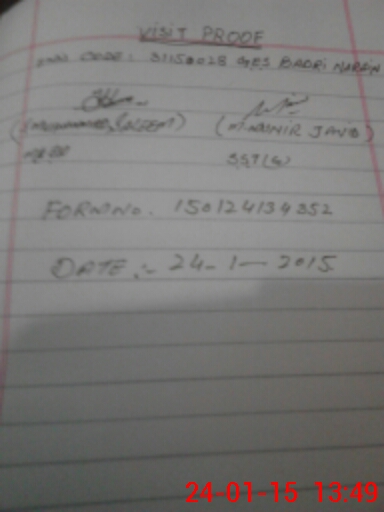 VISIT PROOF
CODE: 31150028 GES BADRI NARAIN
(MUHAMMAD SALEEM) (M. MUNIR JAVID)
SST(G)
FORM NO. 150124134352
DATE :- 24-1-2015
24-01-15 13:49